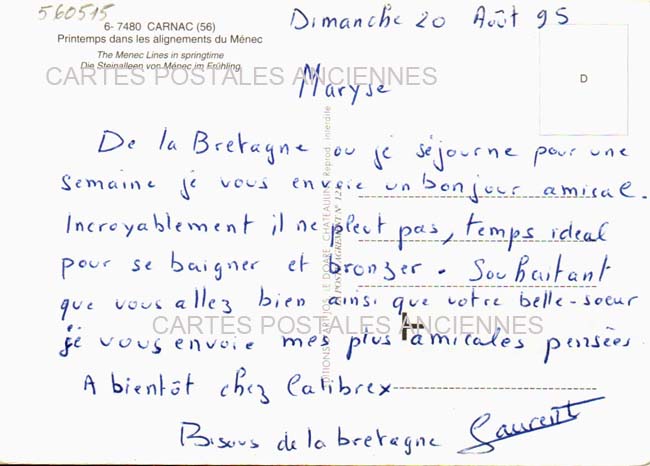 560515
6- 7480 CARNAC (56)
Printemps dans les alignements du Ménec
The Menec Lines in springtime
Die Steinalleen von Ménec im Frühling
CARTES POSTALES ANCIENNES
Dimanche 20 Août 95
D
Maryse
De la Bretagne ou je séjourne pour une
semaine je vous envoie un bonjour amical.
Incroyablement il ne pleut pas, temps ideal
pour se baigner et bronzer. Souhaitant
que vous allez bien ainsi que votre belle-soeur
CARTES POSTALES ANCIENNES
je vous envoie mes plus amicales pensées
A bientôt chez Calibrex
Bisous de la bretagne Laurent